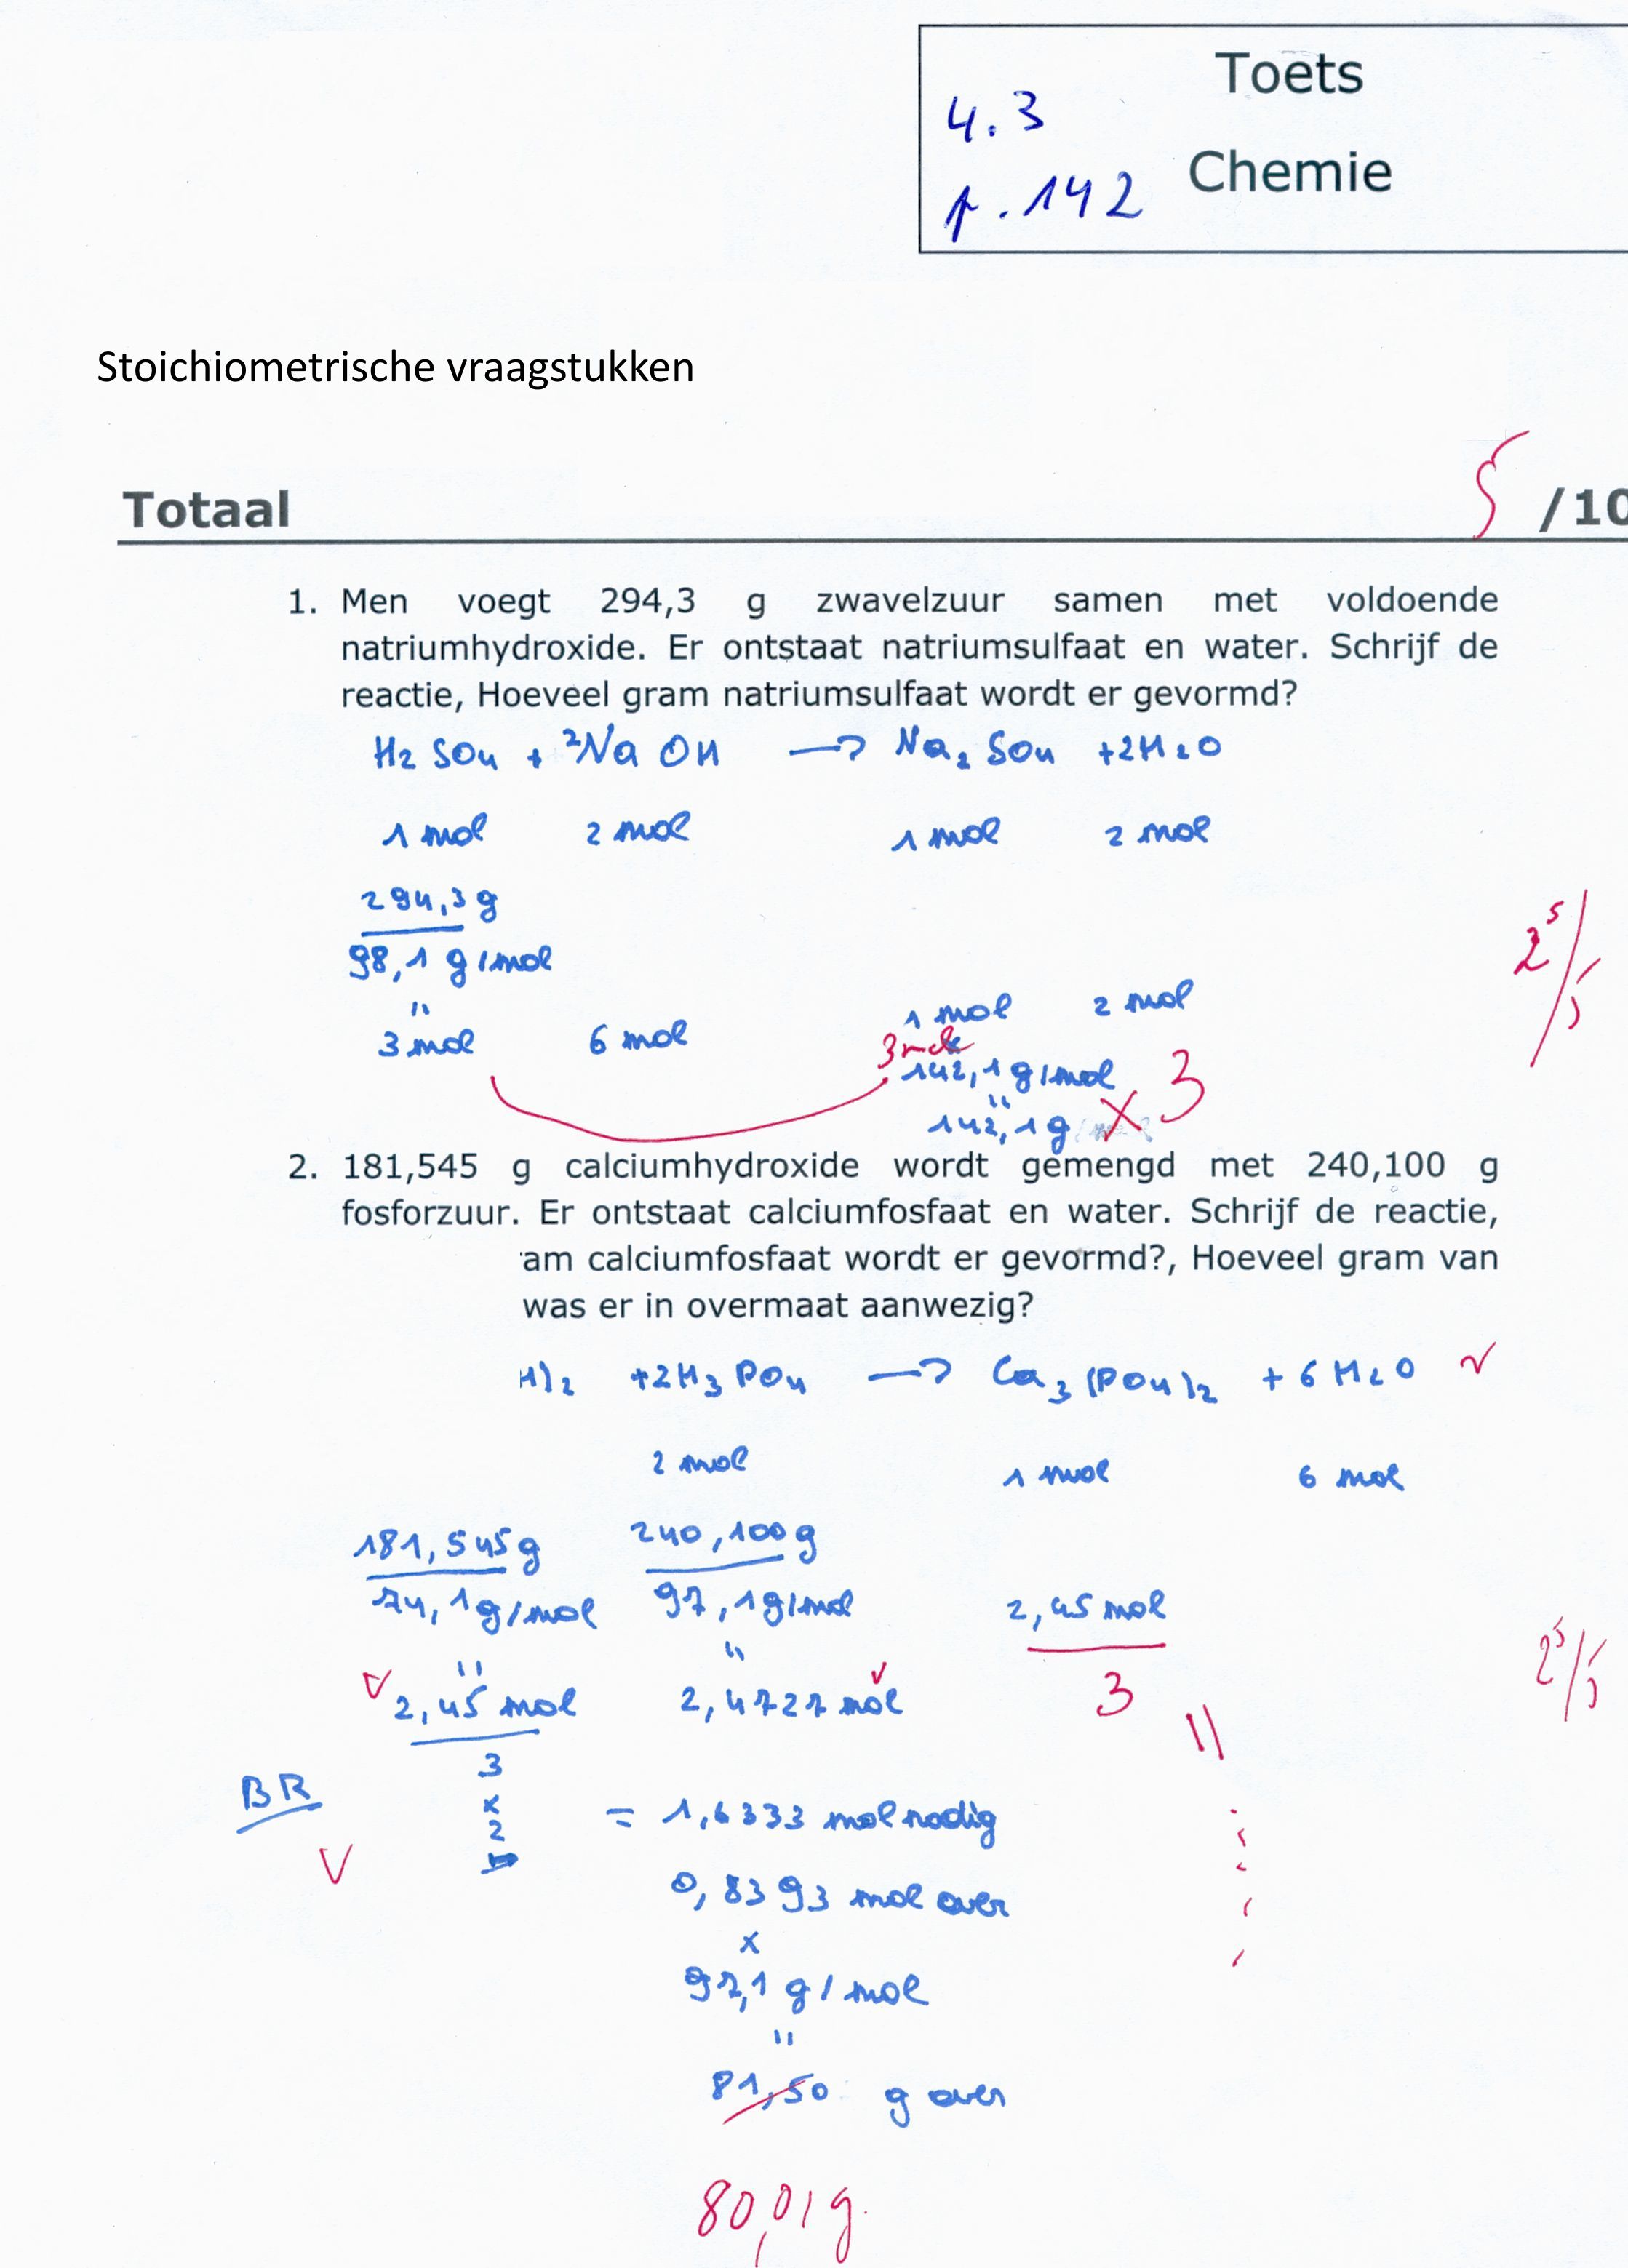 Toets
4.3
Chemie
p. 142
Stoichiometrische vraagstukken
Totaal 5 /10
1. Men voegt 294,3 g zwavelzuur samen met voldoende
natriumhydroxide. Er ontstaat natriumsulfaat en water. Schrijf de
reactie, Hoeveel gram natriumsulfaat wordt er gevormd?
H2 SO4 + 2Na OH → Na2 SO4 +2H2O
1 mol 2 mol 1 mol 2 mol
294,3 g
98,1 g/mol
2,5/5
"
1 mol 2 mol
3 mol 6 mol
3 mol
x
142,1 g/mol
"
142,1 g x 3
2. 181,545 g calciumhydroxide wordt gemengd met 240,100 g
fosforzuur. Er ontstaat calciumfosfaat en water. Schrijf de reactie,
am calciumfosfaat wordt er gevormd?, Hoeveel gram van
was er in overmaat aanwezig?
H)2 +2H3 PO4 → Ca3 (PO4)2 + 6 H2O √
2 mol 1 mol 6 mol
181,545 g 240,100 g
74,1 g/mol 97,1 g/mol 2,45 mol
" " 3
√ 2,45 mol 2,4727 mol √ "
2,5/5
3
BR x
2 = 1,6333 mol nodig
√
0,8393 mol over
x
97,1 g/mol
"
81,50 g over
80,01 g.